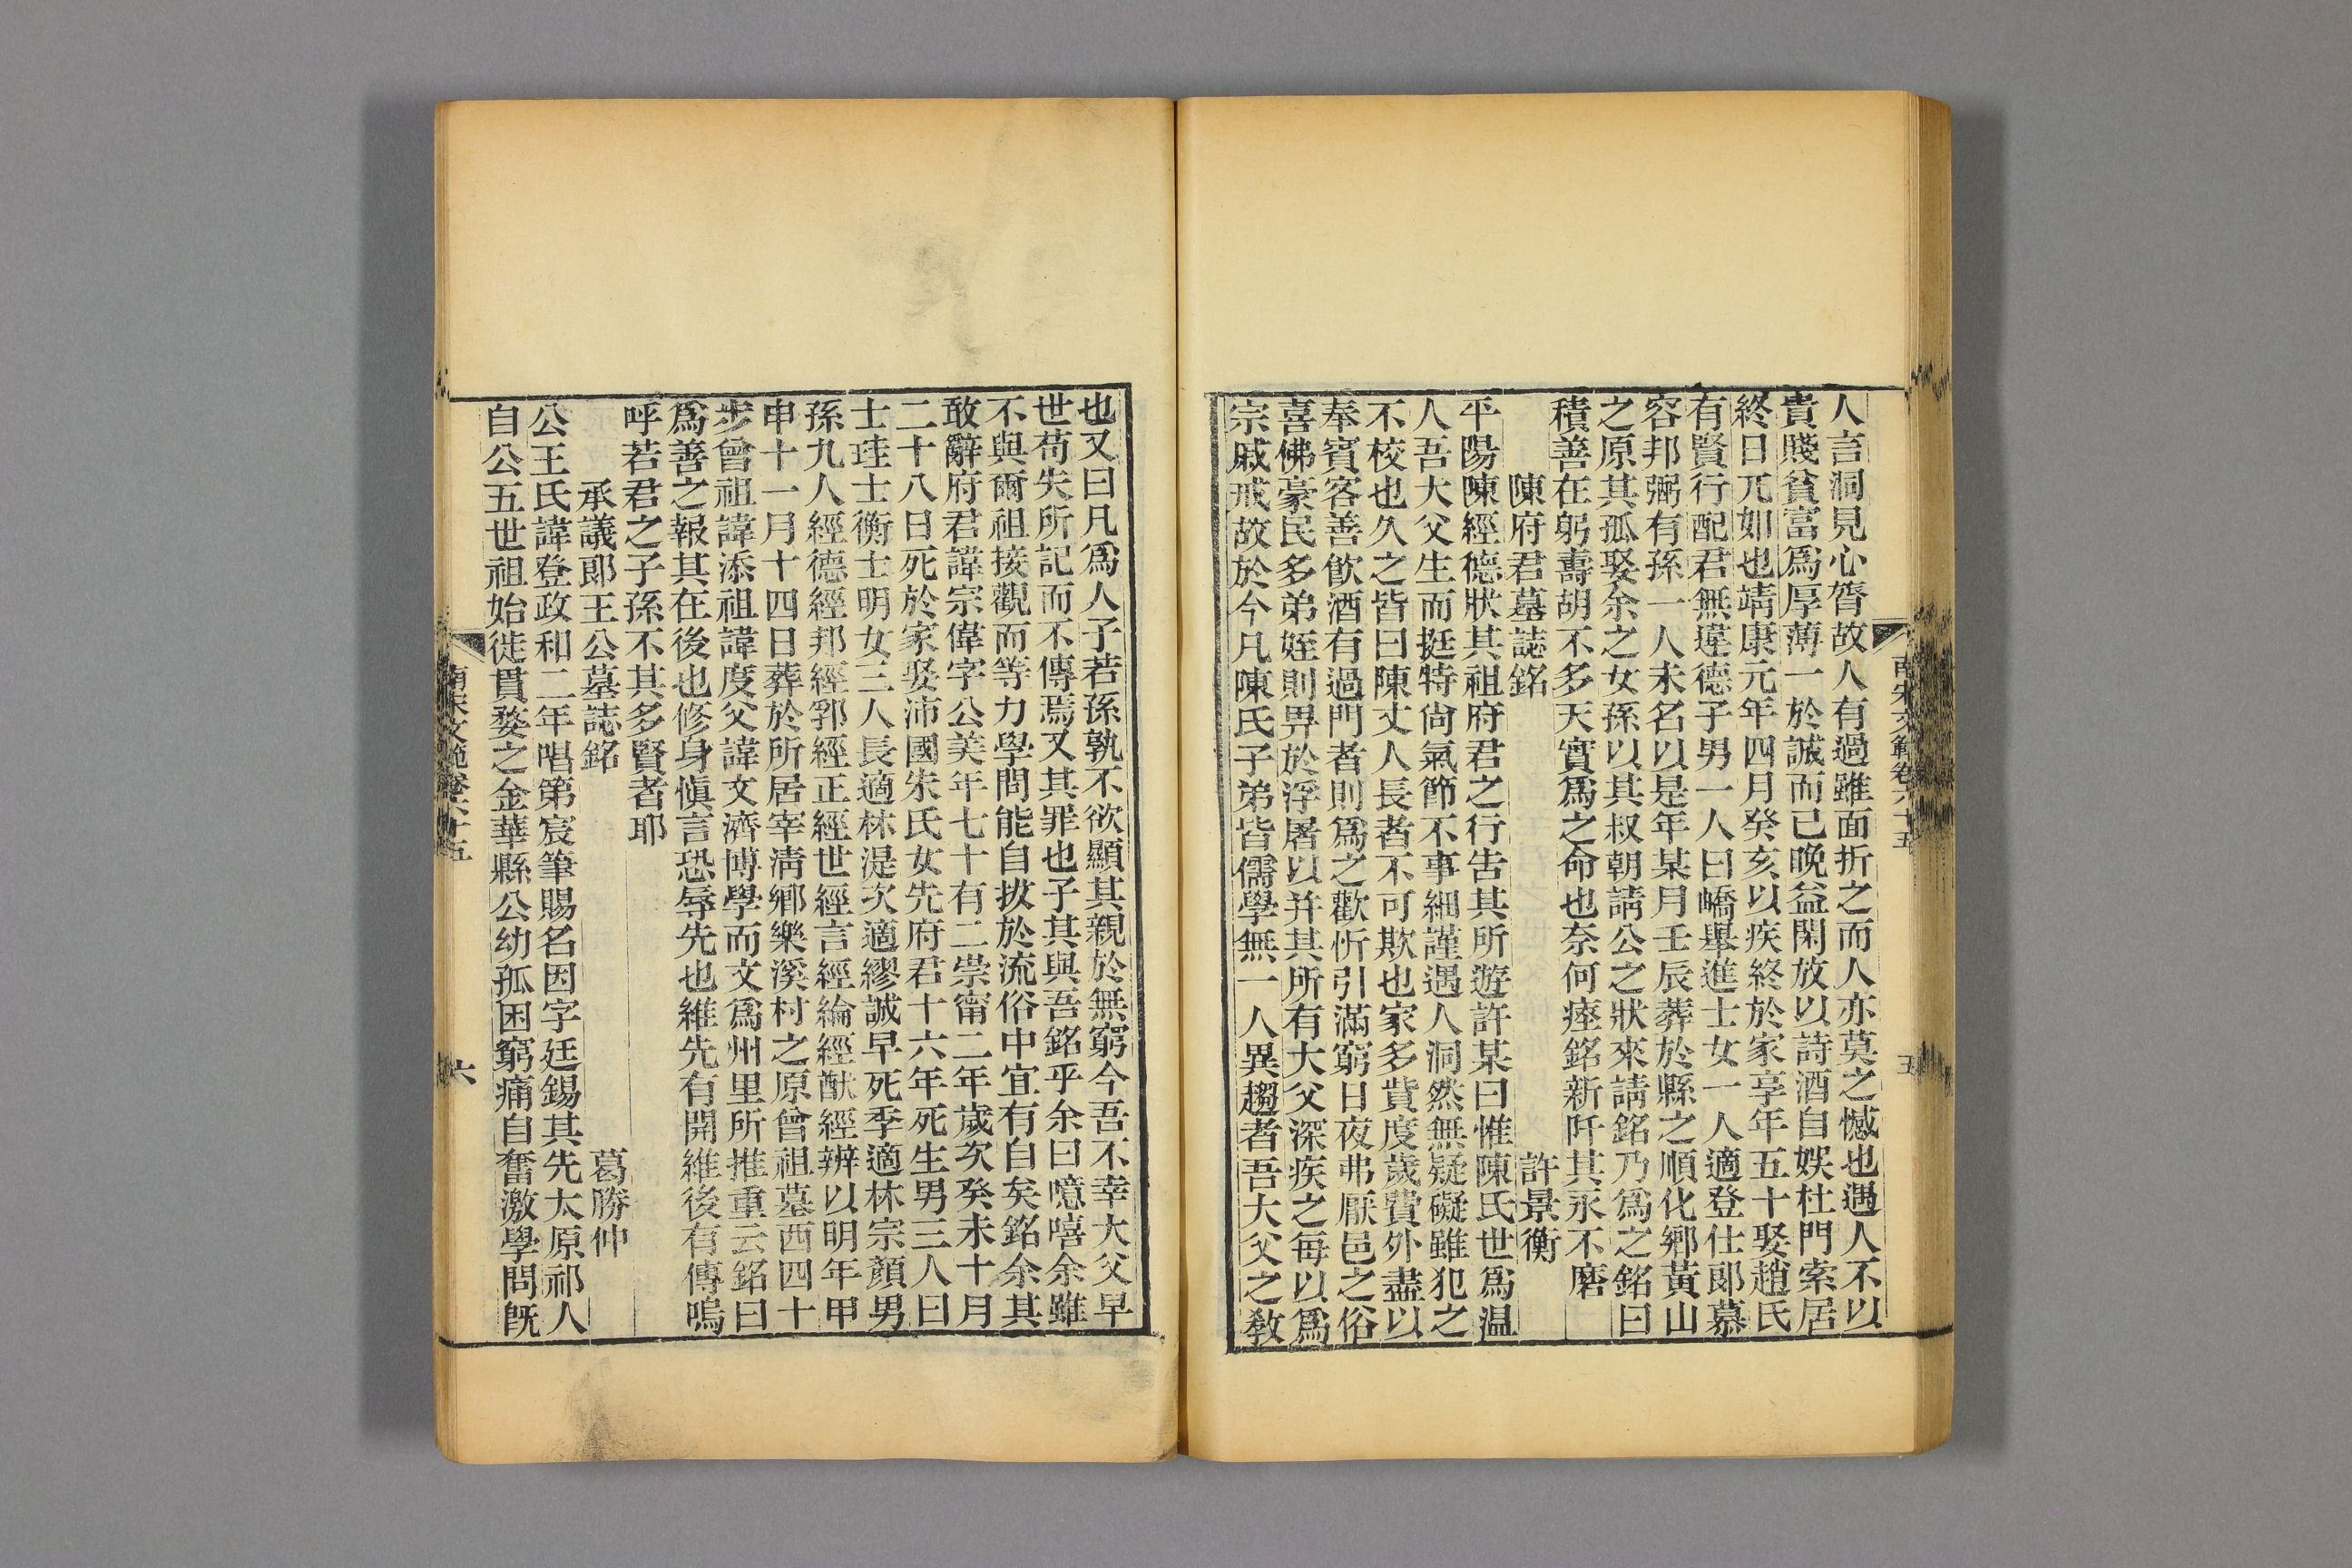 南宋文範卷六十五
五
人言洞見心膂故人有過雖面折之而人亦莫之憾也遇人不以
貴賤貧富爲厚薄一於誠而已晚益閑放以詩酒自娛杜門索居
終日兀如也靖康元年四月癸亥以疾終於家享年五十娶趙氏
有賢行配君無違德子男一人曰嶠舉進士女一人適登仕郞慕
容邦弼有孫一人未名以是年某月壬辰葬於縣之順化鄉黃山
之原其孤娶余之女孫以其叔朝請公之狀來請銘乃爲之銘曰
積善在躬壽胡不多天實爲之命也奈何瘞銘新阡其永不磨
陳府君墓誌銘　許景衡
平陽陳經德狀其祖府君之行吿其所遊許某曰惟陳氏世爲温
人吾大父生而挺特尙氣節不事細謹遇人洞然無疑礙雖犯之
不校也久之皆曰陳丈人長者不可欺也家多貲度歲費外盡以
奉賓客善飮酒有過門者則爲之歡忻引滿窮日夜弗厭邑之俗
喜佛豪民多弟姪則畀於浮屠以并其所有大父深疾之每以爲
宗戚戒故於今凡陳氏子弟皆儒學無一人異趨者吾大父之教
也又曰凡爲人子若孫孰不欲顯其親於無窮今吾不幸大父早
世苟失所記而不傳焉又其罪也子其與吾銘乎余曰噫嘻余雖
不與爾祖接觀而等力學問能自拔於流俗中宜有自矣銘余其
敢辭府君諱宗偉字公美年七十有二崇甯二年歲次癸未十月
二十八日死於家娶沛國朱氏女先府君十六年死生男三人曰
士珪士衡士明女三人長適林湜次適繆誠早死季適林宗顏男
孫九人經德經邦經郛經正經世經言經綸經猷經辨以明年甲
申十一月十四日葬於所居宰淸鄉樂溪村之原曾祖墓西四十
步曾祖諱添祖諱度父諱文濟博學而文爲州里所推重云銘曰
爲善之報其在後也修身愼言恐辱先也維先有開維後有傳嗚
呼若君之子孫不其多賢者耶
承議郞王公墓誌銘　葛勝仲
公王氏諱登政和二年唱第宸筆賜名因字廷錫其先太原祁人
自公五世祖始徙貫婺之金華縣公幼孤困窮痛自奮激學問旣
南宋文範卷六十五
六